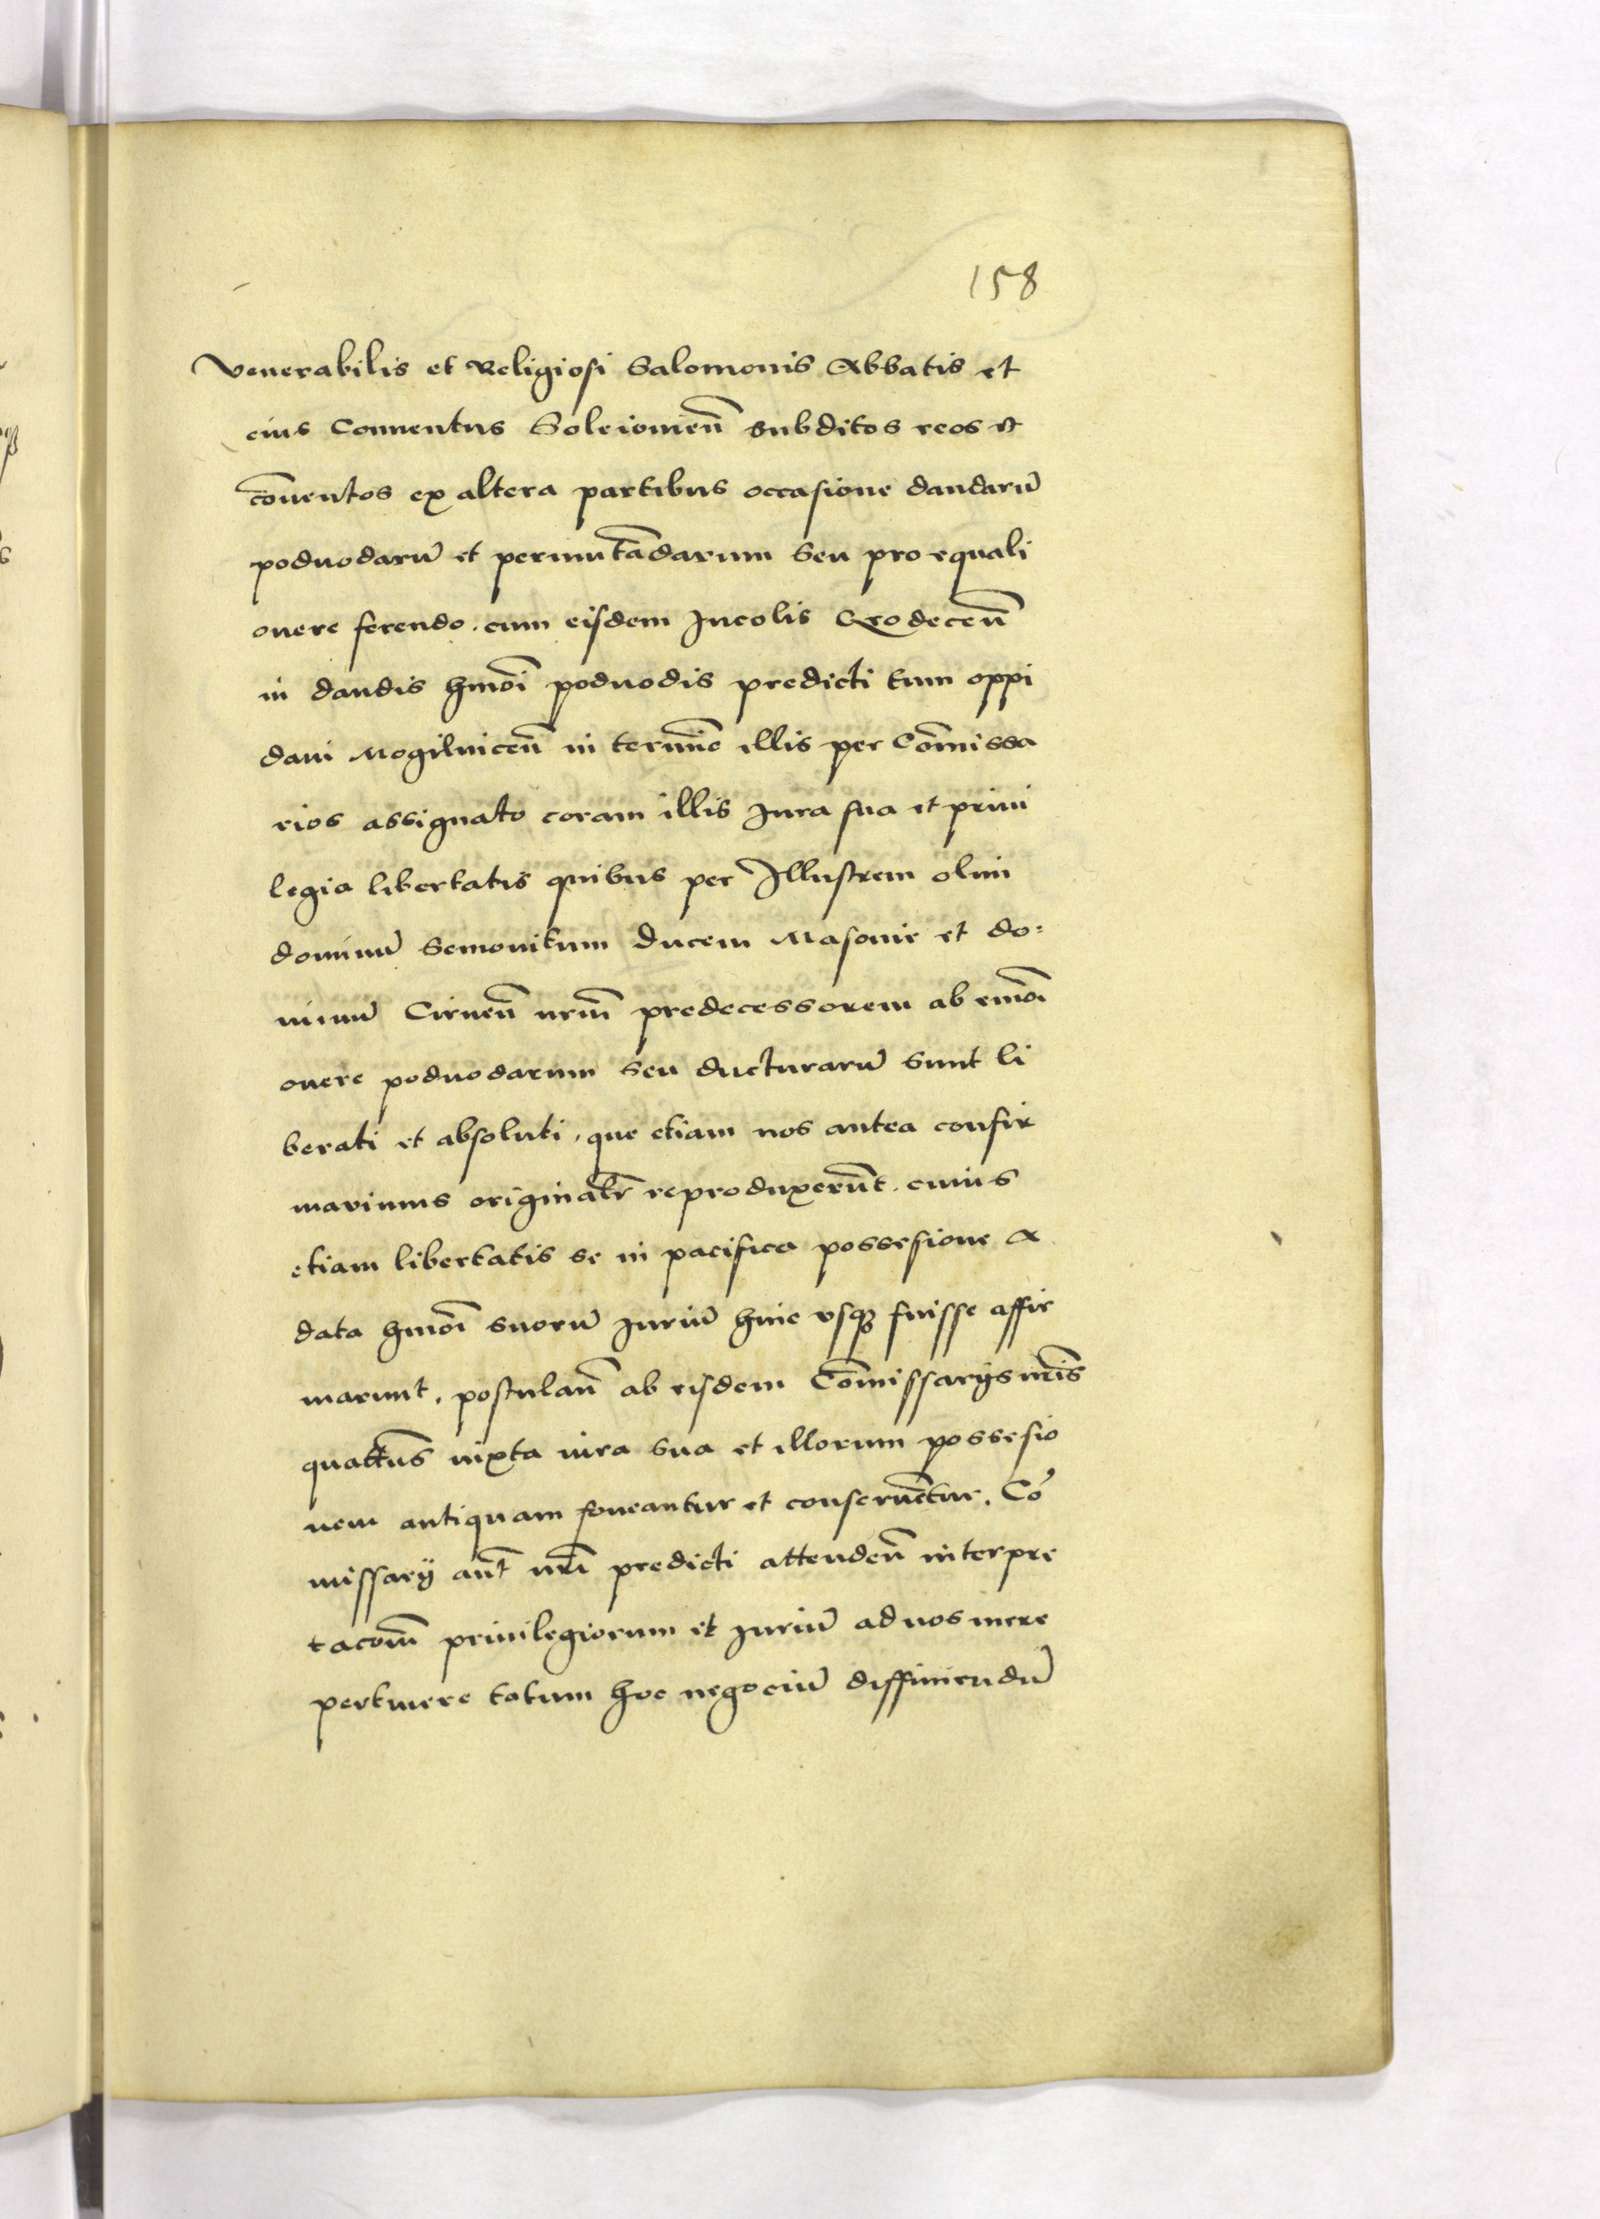 158
Venerabilis et Religiosi Salomonis Abbatis et
eius Conuentus Soleiouien̄ subditos reos et
cōuentos ex altera partibus occasione dandarū
poduodarū et permutādarum seu pro equali
onere ferendo. cum eisdem Incolis Grodecen̄
in dandis hmōi poduodis predicti tum oppi
dani Mogilnicen̄ in termīo illis per Cōmissa
rios assignato coram illis Jura sua et priui
legia libertatis quibus per Illustrem olim
dominū Semouitum Ducem Masouie et do=
minū Cirnen̄ nrm̄ predecessorem ab em̄oi
onere poduodarum seu ducturarū sunt li
berati et absoluti, que etiam nos antea confir
mauimus originalr̄ reproduxerūt. cuius
etiam libertatis se in pacifica possesione a
data hmōi suorū Juriū huic vsqꝫ fuisse affir
marunt, postulan̄ ab eisdem Cōmissarijs nr̄is
quatt̄us iuxta iura sua et illorum possesio
nem antiquam foueantur et conseruētur. Cō
missarij aūt nr̄i predicti attenden̄ interpre
tacom̄ priuilegiorum et Juriū ad nos mere
pertinere totum hoc negociū diffiniendū